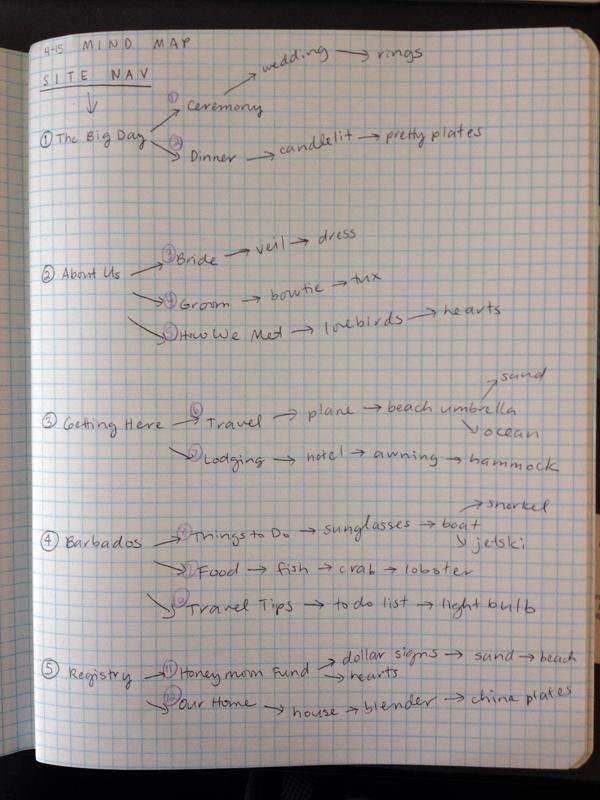 4-15 MIND MAP
SITE NAV
① The Big Day
① Ceremony → wedding → rings
② Dinner → candlelit → pretty plates
② About Us
③ Bride → veil → dress
④ Groom → bowtie → tux
⑤ How We Met → lovebirds → hearts
③ Getting Here
⑥ Travel → plane → beach umbrella
sand
ocean
⑦ Lodging → hotel → awning → hammock
④ Barbados
⑧ Things to Do → sunglasses → boat
snorkel
jetski
⑨ Food → fish → crab → lobster
⑩ Travel Tips → to do list → light bulb
⑤ Registry
⑪ Honeymoon Fund → dollar signs → sand → beach
→ hearts
⑫ Our Home → house → blender → china plates